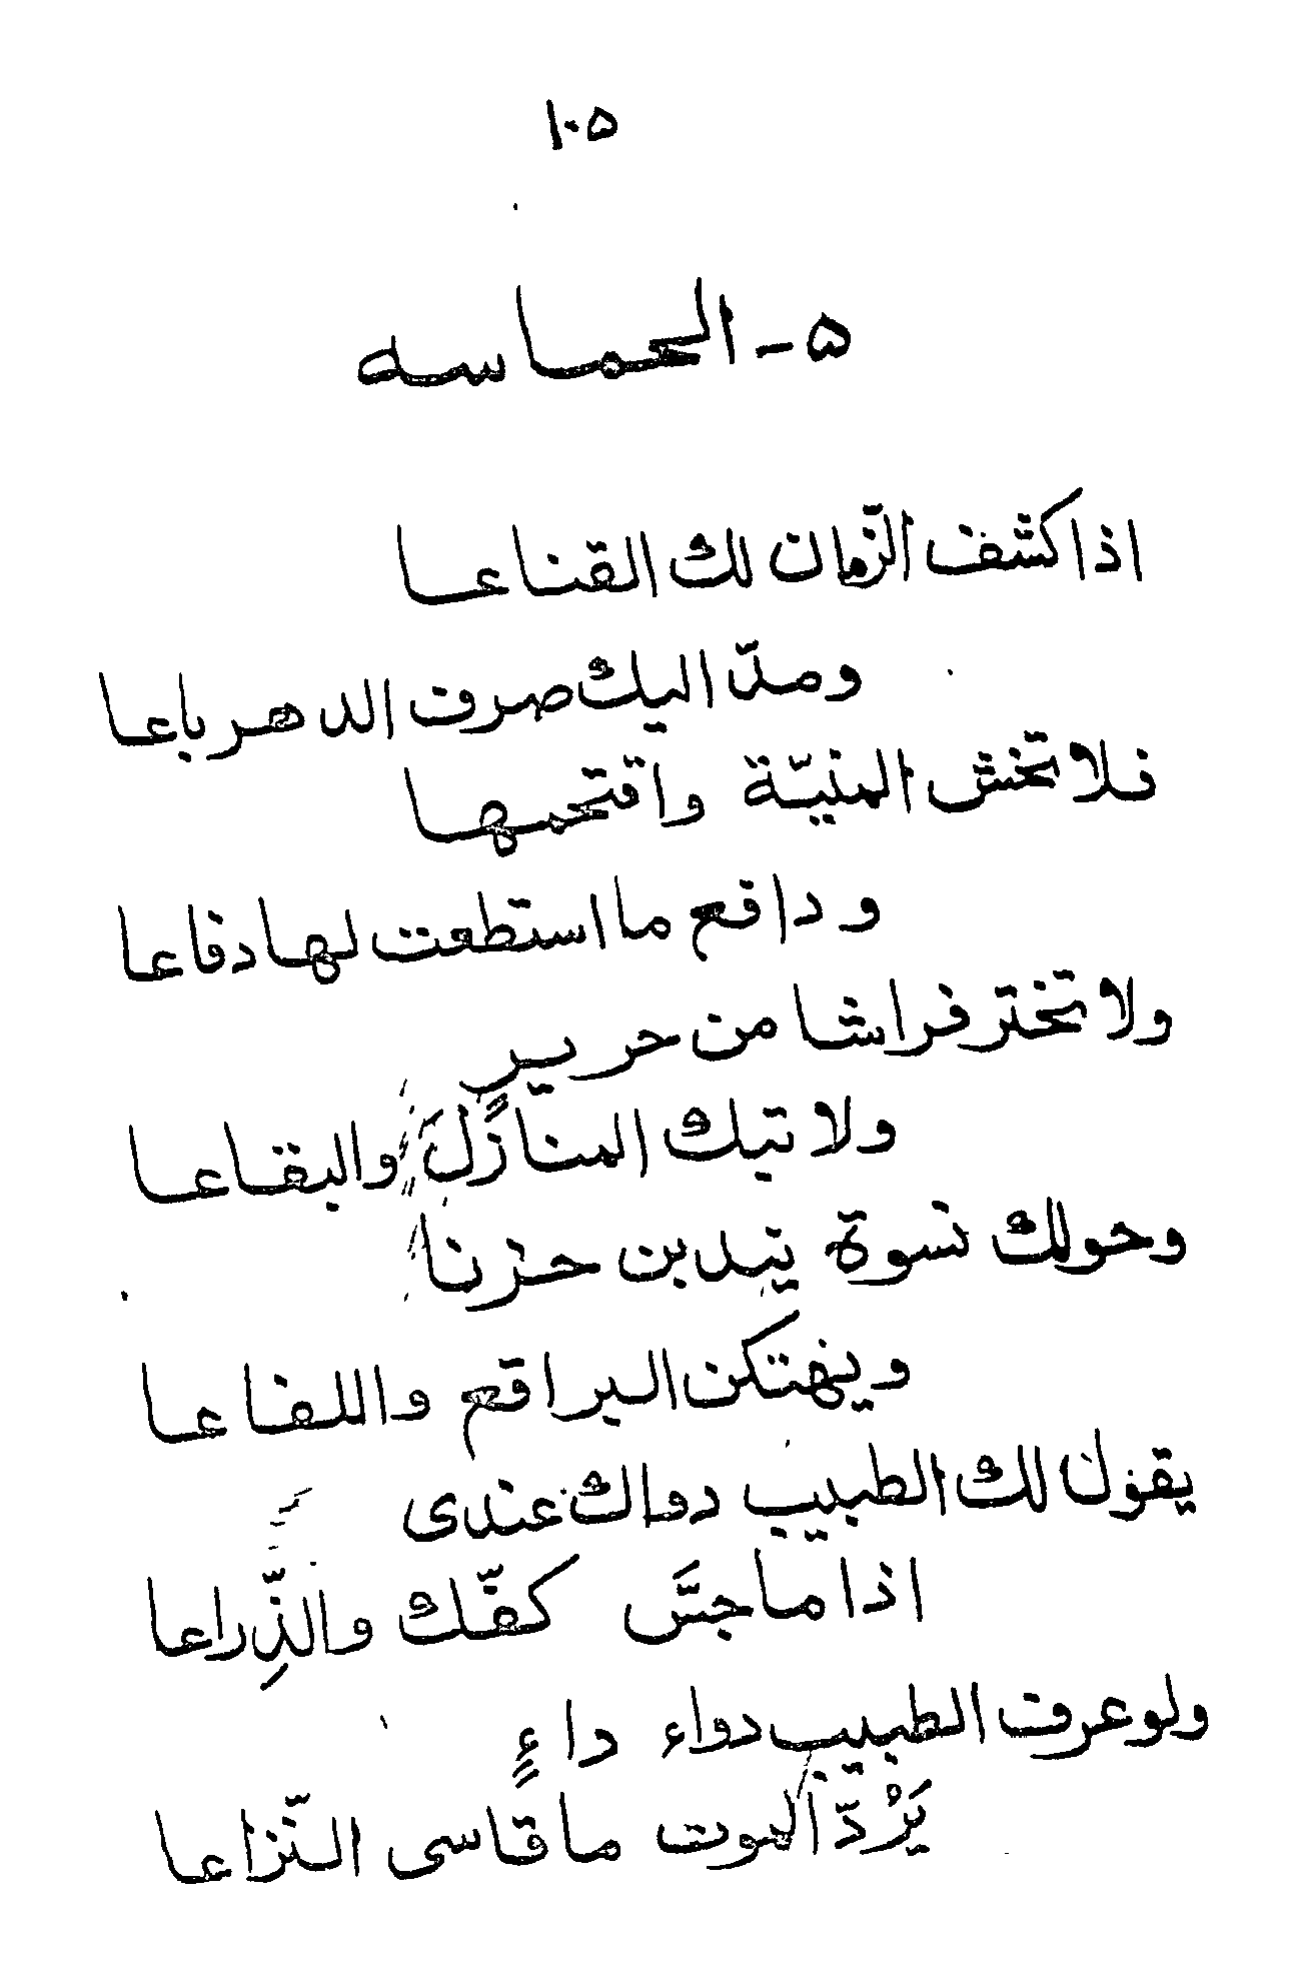 ١٠۵
۵ - الحماسه
اذا كشف الزّمان لك القناعا
ومدّ اليك صرف الدهر باعا
فلا تخش المنيّة واقتحمها
ودافع ما استطعت لها دفاعا
ولا تختر فراشا من حريرٍ
ولا تبك المنازلَ والبقاعا
وحولك نسوة يندبن حزنا
ويهتكن البراقع واللفاعا
يقول لك الطبيب دواك عندى
اذا ما جسَّ كفّك والذِّراعا
ولو عرف الطبيب دواء داءٍ
يَرْدّ الموت ما قاسى النّزاعا